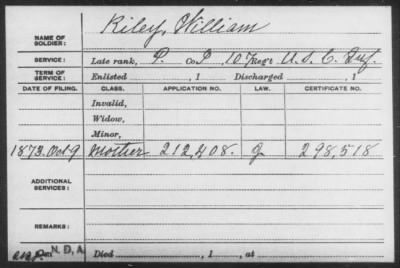 NAME OF SOLDIER: Riley, William
SERVICE: Late rank, P. Co. 107 Regt U. S. C. Inf.
TERM OF SERVICE: Enlisted , 1 Discharged , 1
DATE OF FILING. CLASS. APPLICATION NO. LAW. CERTIFICATE NO.
Invalid,
Widow,
Minor,
1873. Oct 9 Mother 212,408. 298,518
ADDITIONAL SERVICES:
REMARKS:
N. D. A. Died , 1 , at